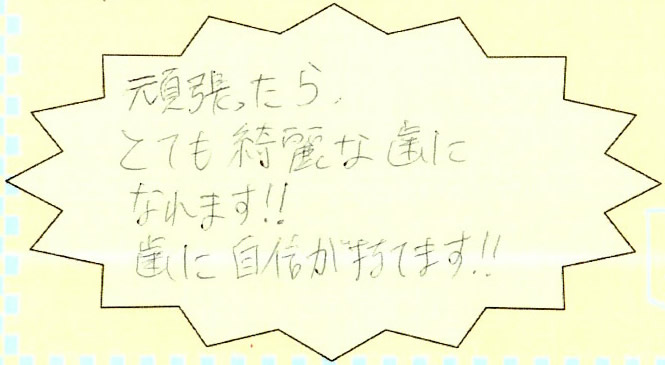 頑張ったら、
とても綺麗な歯に
なれます!!
歯に自信が持てます!!